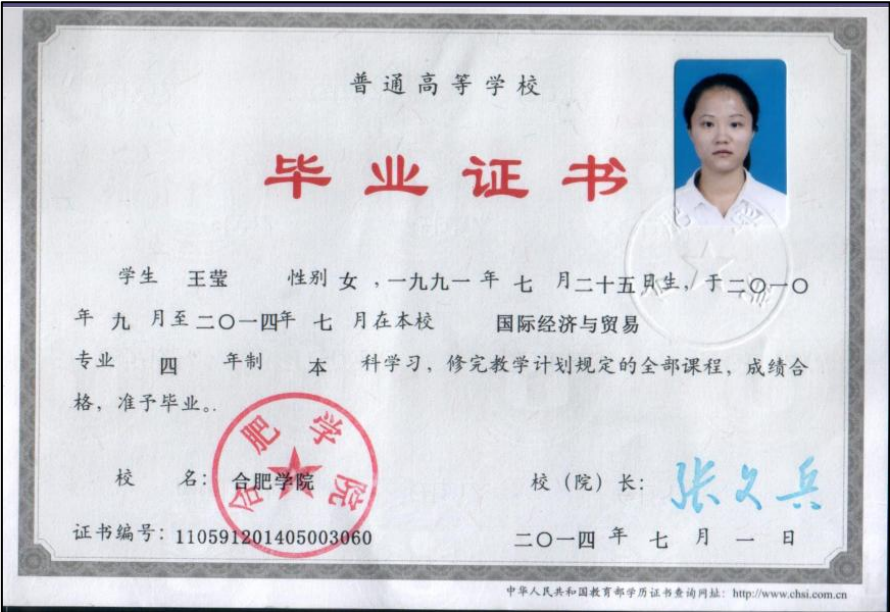 普通高等学校
毕业证书
学生 王莹 性别 女 ，一九九一 年 七 月二十五日生，于二〇一〇
年 九 月至二〇一四年 七 月在本校 国际经济与贸易
专业 四 年制 本 科学习，修完教学计划规定的全部课程，成绩合
格，准予毕业。
合肥学院
校 名： 合肥学院
校（院）长： 张文兵
证书编号：110591201405003060
二〇一四 年 七 月 一 日
中华人民共和国教育部学历证书查询网址：http://www.chsi.com.cn